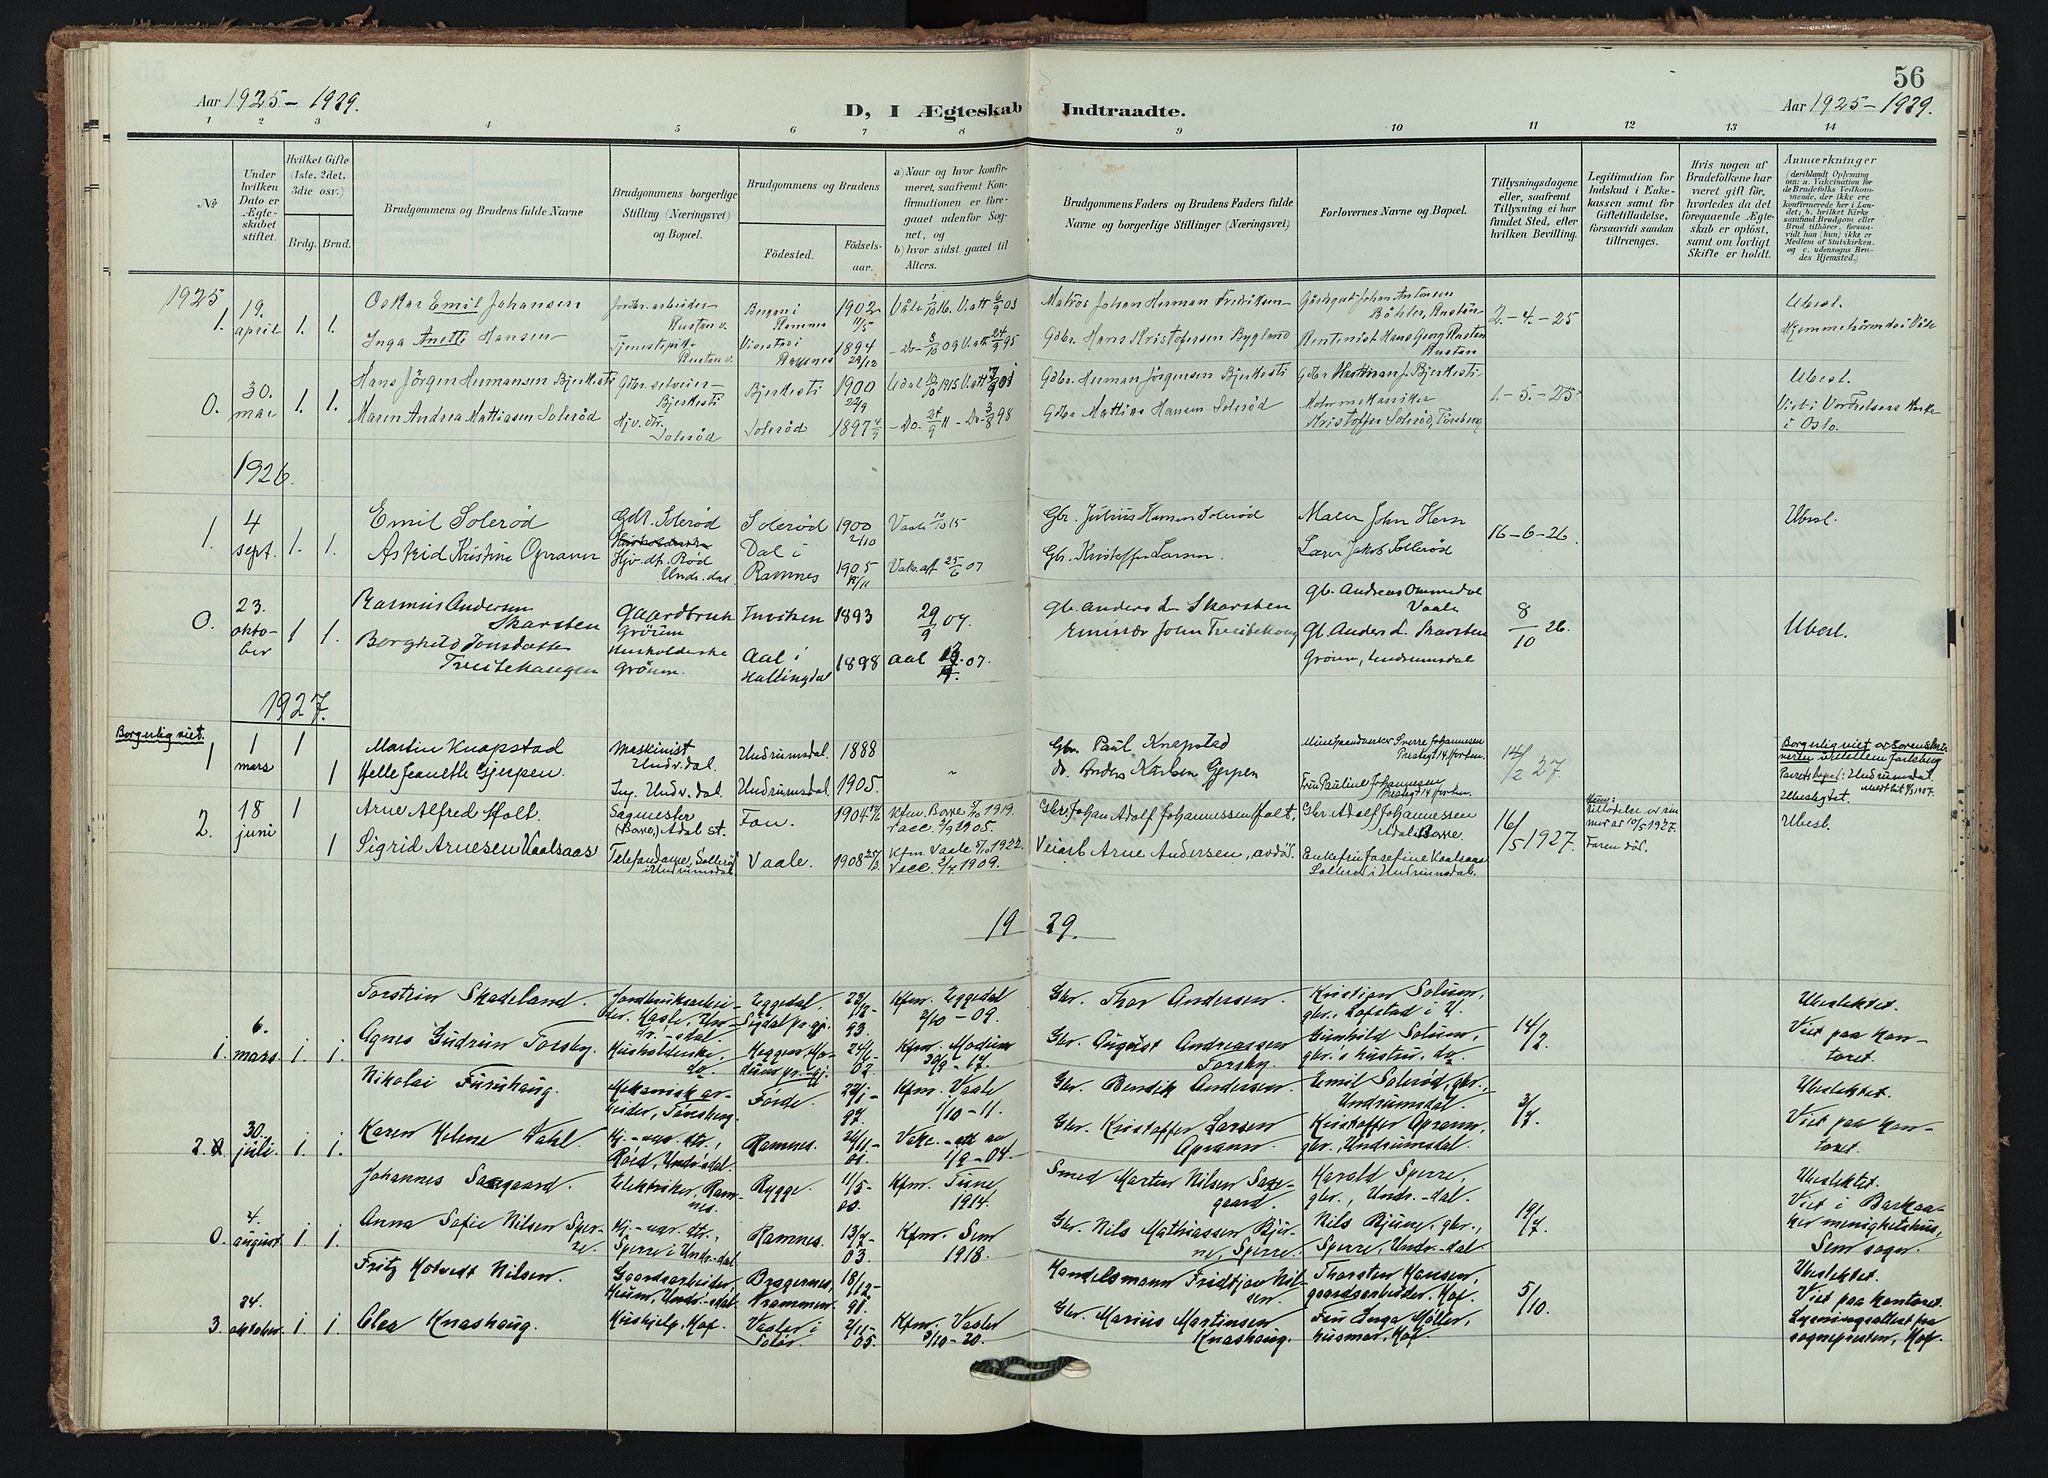 56
Aar 1925 - 1929.
D, I Ægteskab Indtraadte.
Aar 1925 - 1929.
1 2 3 4 5 6 7 8 9 10 11 12 13 14
No
Under hvilken Dato er Ægteskabet stiftet.
Hvilket Gifte (1ste, 2det, 3die osv.)
Brdg. Brud.
Brudgommens og Brudens fulde Navne
Brudgommens borgerlige Stilling (Næringsvei) og Bopæl.
Brudgommens og Brudens
Födested.
Födselsaar.
a) Naar og hvor konfirmeret, saafremt Konfirmationen er foregaaet udenfor Sognet, og
b) hvor sidst gaaet til Alters.
Brudgommens Faders og Brudens Faders fulde Navne og borgerlige Stillinger (Næringsvei)
Forlovernes Navne og Bopæl.
Tillysningsdagene eller, saafremt Tillysning ei har fundet Sted, efter hvilken Bevilling.
Legitimation for Indskud i Enkekassen samt for Giftetilladelse, forsaavidt saadan tiltrænges.
Hvis nogen af Brudefolkene har været gift för, hvorledes da det foregaaende Ægteskab er oplöst, samt om lovligt Skifte er holdt.
Anmærkninger
(deriblandt Oplysning om: a. Vakcination for de Brudefolks Vedkommende, der ikke ere konfirmerede her i Landet; b. hvilket Kirkesamfund Brudgom eller Brud tilhörer, forsaavidt han (hun) ikke er Medlem af Statskirken, og c. udensogns Brudes Hjemsted.)
1925
1. 19. april 1. 1.
Oskar Emil Johansen
Jordbr.arbeider Rustan v.
Bergan i Ramnes
1902 11/5
Våle 1/10 16. V.att 6/9 03
Matros Johan Herman Fredriksen
2-4-25
Ubesl.
Inga Anette Hansen
Tjenestepike Rustan v.
Ramnes
1894
Do 3/10 09 V.att 24/9 95
Gdbr. Hans Kristofersen Bygland
Rentenist Hans Georg Rustan Rustan
Hjemmehörende i Våle
0. 30. mai 1. 1.
Hans Jörgen Hermansen Bjerkesti
Gdbr. selveier Bjerkesti
Bjerkesti
1900 22/9
Gdbr. Herman Jörgensen Bjerkesti
Gdbr Herman J. Bjerkesti
1.-5.-25
Ubesl.
Maren Andrea Mattiasen Solerød
Hjv. dtr. Solerød
Solerød
1897 4/9
Do 24/9 11 Do 3/8 98
Gdbr Mattias Hansen Solerød
Kristoffer Solerød, Tönsberg
Viet i Vor Frelsers Kirke i Oslo.
1926
1. 4 sept. 1. 1.
Emil Solerød
Gdbr. Solerød
Solerød
1900 2/10
Vaale 10/10 15
Gbr. Julius Hansen Solerød
Maler John Hern
16-6-26
Ubesl.
Astrid Kristine Opramn
Hjv. dt. Rød Undr.dal
Dal i Ramnes
1905 18/11
Vaks.att 25/6 07
Gb. Kristoffer Larsen.
Lærer Jakob Sollerød
0. 23. oktober 1 1.
Rasmus Andersen Skarsten
Gaardbruk Gröum
Inviken
1893
29/9 07.
Gb. Anders L. Skarsten
Gb. Andreas Ommedal Vaale
8/10 26.
Ubesl.
Borghild Jonsdatter Treitehaugen
Husholderske Gröum.
Aal i Hallingdal
1898
Aal 07.
Emissær John Treitehaug
Gb. Anders L. Skarsten Gröum, Undrumsdal
1927.
Borgerlig viet.
1 1 mars 1
Martin Knapstad
Maskinist Undr.dal.
Undrumsdal.
1888
Gbr. Paul Knapstad
Sverre Johannesen Prestegt 14 Horten.
14/2 27
Borgerlig viet
Undrumsdal.
Ubeslegtet.
1
Helle Jeanette Gjerpen.
Ing. Undr. dal
Undrumsdal
1905.
do. Anders Karlsen Gjerpen
Fru Pauline Johannesen Prestegt 14 Horten.
2. 18 juni 1
Arne Alfred Holt.
Sagmester (Borre) Adal st.
Fon.
1904
Kfm. Borre 5/10 1919. Vacc. 2/9 1905.
Gbr. Johan Adolf Johannessen Holt,
Gbr. Adolf Johannessen Adal Borre
16/5 1927.
10/5 1927. Faren död.
Ubesl.
1
Sigrid Arnesen Vaalsaas
Telefondame, Sollerød i Undrumsdal
Vaale.
1908 25/3
Kfm Vaale 5/10 1922. Vacc. 2/7 1909.
Veiarb Arne Andersen, avdöd.
Enkefru Josefine Vaalsaas Sollerød i Undrumsdal.
1929.
1. 6. mars 1 1.
Torstein Skadeland.
Jordbruksarbeider, Hasle, Undr.-dal.
Eggedal, Sigdal pr.gj.
23/12-93.
Kfm. Eggedal 2/10-09.
Gbr. Thor Andersen.
Kristian Solum, gbr., Lofstad i U.
14/2.
Ubeslektet. Viet paa kontoret.
Agnes Gudrun Torsby.
Husholderske, do
Heggen Modum pr. gj.
24/6-02.
Kfm. Modum 30/9-17.
Gbr. August Andreassen Torsby.
Gunhild Solum, gbr.'s hustru, do.
2. 30. juli 1 1.
Nikolai Furuhaug.
Mekanisk arbeider, Tönsberg
Förde.
22/1-97.
Kfm. Vaale 1/10-11.
Gbr. Bendik Andersen.
Emil Solerød, gbr., Undrumsdal.
3/7
Ubeslektet. Viet paa kontoret.
Karen Helene Dahl.
Hj.-vær. dtr., Röed, Undr.-dal.
Ramnes.
26/11-01.
Vakc.-att av 1/9-04.
Gbr. Kristoffer Larsen Opramn.
Kristoffer Opramn, gbr., Undrumsdal.
0 4. august 1 1.
Johannes Saxegaard.
Elektriker, Ramnes.
Rygge.
11/5-00.
Kfm. Tune 1914.
Smed Martin Nilsen Saxegaard.
Harald Sperre, gbr., Undr.-dal.
19/7
Ubeslektet. Viet i Barkaaker menighetshus, Sem sogn.
Anna Sofie Nilsen Sperre.
Hj.-vær. dtr., Sperre i Undr.-dal
Ramnes.
13/7-03.
Kfm. Sem 1918.
Gbr. Nils Mathiassen Bjune, Sperre.
Nils Bjune, gbr., Sperre, Undr.-dal
3. 24. oktober 1 1.
Fritz Hotvedt Nilsen.
Gaardsarbeider, Undr.-dal
Bragernes, Drammen
18/12-91.
Handelsmann Fridtjov Nilsen.
Thorsten Hansen, gaardsarbeider, Hof.
5/10.
Ubeslektet. Viet paa kontoret. Lysningsattest fra sogneprесten, Hof.
Olea Knashaug.
Hushjelp, Hof.
Vaaler i Solör.
2/11-05.
Kfm. Vaaler 3/10-20.
Gbr. Marius Martinsen Knashaug.
Fru Inga Möller, husmor, Hof